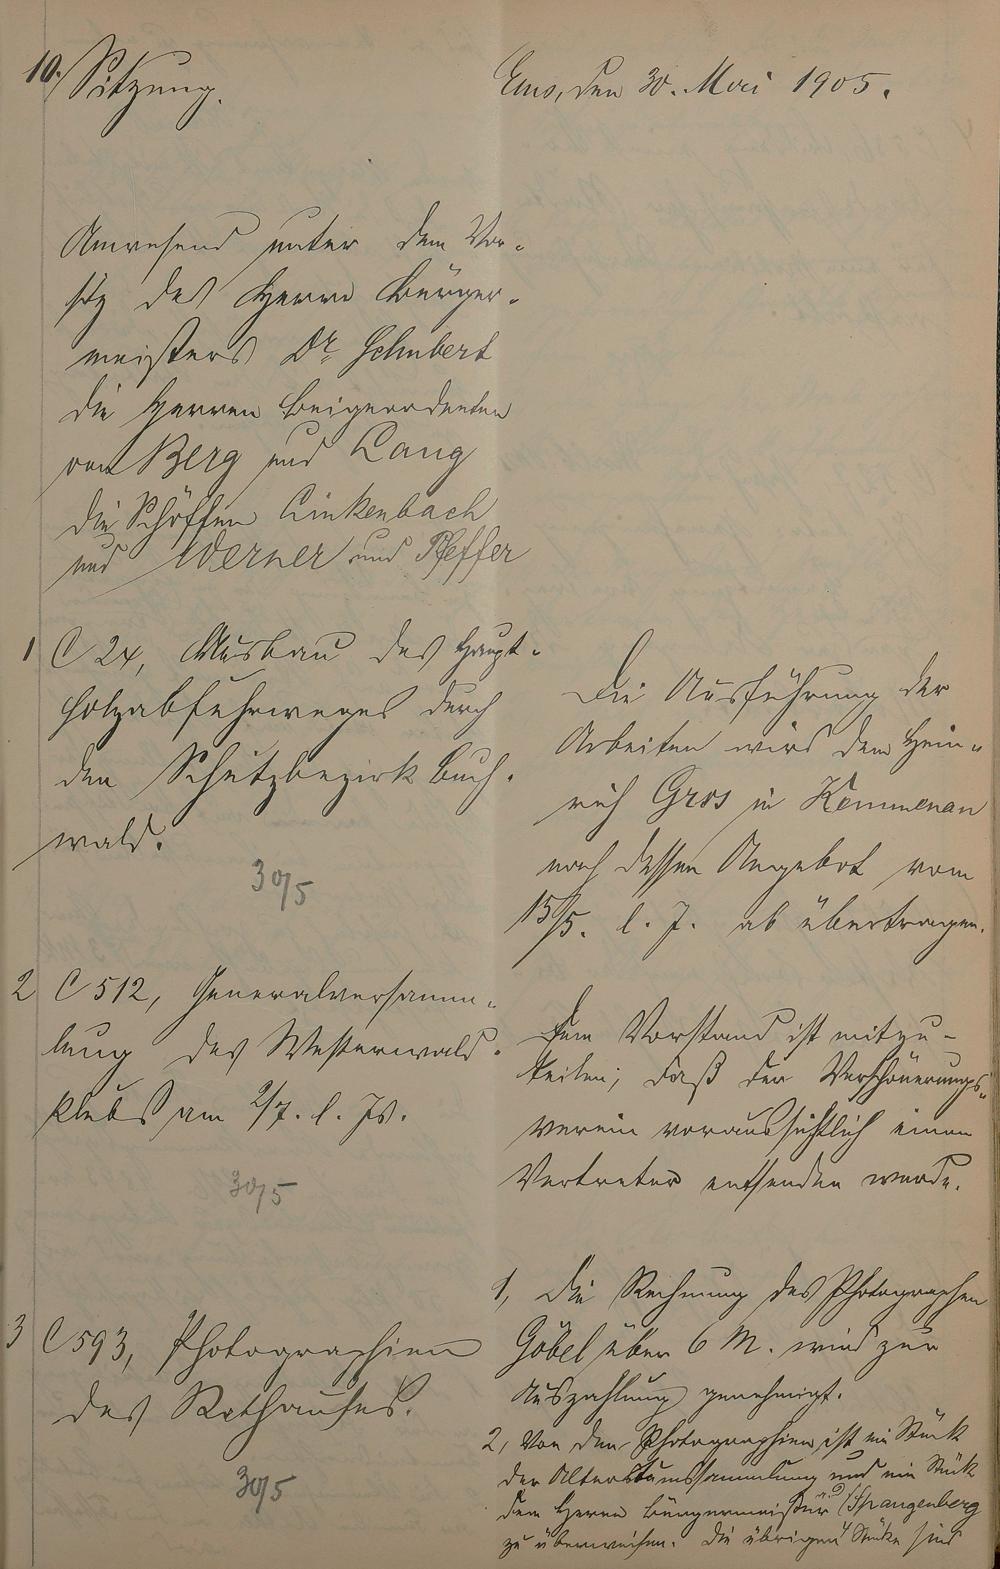 10. Sitzung.
Ems, den 30. Mai 1905.
Anwesend unter dem Vor-
sitz des Herrn Bürger-
meisters Dr. Schubert
die Herren Beigeordneten
von Berg und Lang
die Schöffen Linkenbach
und Werner und Pfeffer
1 C 24, Ausbau des Haupt-
holzabfuhrweges durch
den Schutzbezirk Buch-
wald.
30/5
Die Ausführung der
Arbeiten wird dem Hein-
rich Gros in Kemmenau
nach dessen Angebot vom
15/5. l. J. ab übertragen.
2 C 512, Generalversamm-
lung des Westerwald-
klubs am 2/7. l. Js.
30/5
Dem Vorstand ist mitzu-
teilen, daß der Verschönerungs-
verein voraussichtlich einen
Vertreter entsenden werde.
3 C 593, Photographien
des Rathauses.
30/5
1, Die Rechnung des Photographen
Göbel über 6 M. wird zur
Auszahlung genehmigt.
2, Von den Photographien ist ein Stück
der Altertumssammlung und ein Stück
dem Herrn Bürgermeister a.D. Spangenberg
zu überweisen. Die übrigen 4 Stücke sind